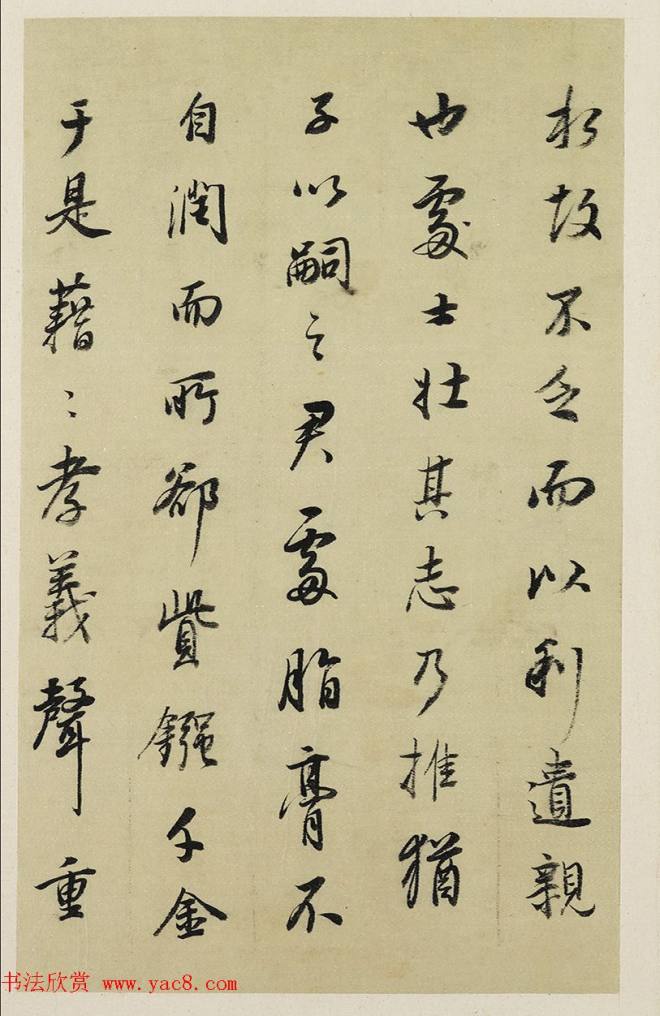 於故不乏而以利遺親
也處士壯其志乃推猶
子以嗣之君處脂膏不
自潤而所卻貲鏹千金
于是藉〻孝義聲重
书法欣赏 www.yac8.com